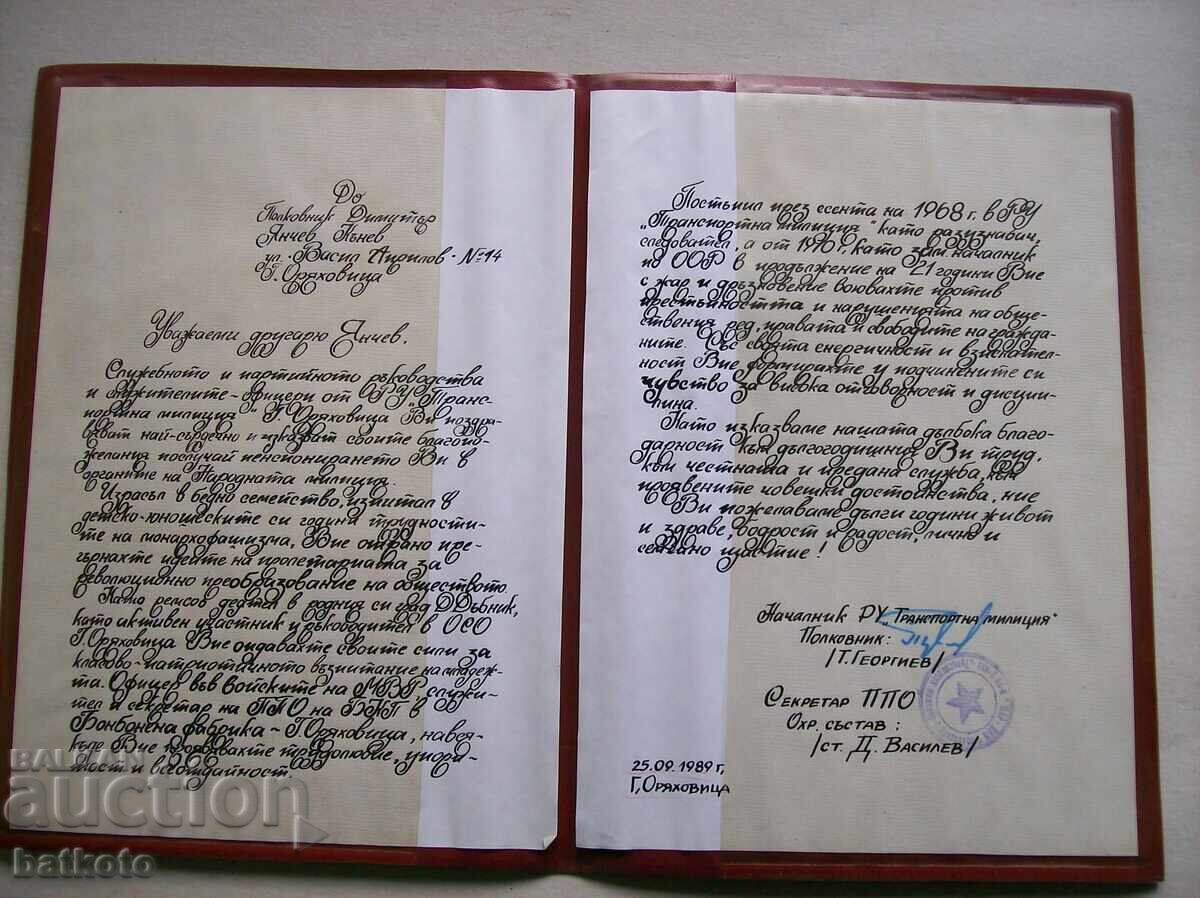 До
Полковник Димитър
Янчев Пънев
ул. Васил Кирилов - №14
Г. Оряховица
Уважаеми другарю Янчев.
Служебното и партийното ръководства
и служителите - офицери от РУ „Транс-
портна милиция" Г. Оряховица Ви поздра-
вяват най-сърдечно и изказват своите благопо-
желания по случай пенсионирането Ви в
органите на Народната милиция.
Израсъл в бедно семейство, изпитал в
детско-юношеските си година трудности-
те на монархофашизма, Вие отрано пре-
гърнахте идеите на пролетариата за
революционно преобразование на обществото.
Като ремсов деятел в родния си град Д. Дъбник,
като активен участник и ръководител в ОСО
Г. Оряховица Вие отдавахте своите сили за
класово-патриотичното възпитание на младеж-
та. Офицер във войските на МВР, служи-
тел и секретар на ППО на БКП в
Бонбонена фабрика - Г. Оряховица, нався-
къде Вие проявявахте трудолюбие, упори-
тост и всеотдайност.
Постъпил през есента на 1968 г. в РУ
„Транспортна милиция" като разузнавач,
следовател, а от 1970 г. като зам. началник
по ООР в продължение на 21 години Вие
с жар и дръзновение воювахте против
престъпността и нарушенията на обще-
ствения ред, правата и свободите на гражда-
ните. Със своята енергичност и взискател-
ност Вие формирахте у подчинените си
чувство за висока отговорност и дисци-
плина.
Като изказваме нашата дълбока благо-
дарност към дългогодишния Ви труд,
към честната и предана служба, към
проявените човешки достойнства, ние
Ви пожелаваме дълги години живот
и здраве, бодрост и радост, лично и
семейно щастие!
Началник РУ „Транспортна милиция"
Полковник:
/Т. Георгиев/
Секретар ППО
Охр. състав:
/ст. Д. Василев/
25.09.1989 г,
Г, Оряховица
BALKAN
auction
batkoto